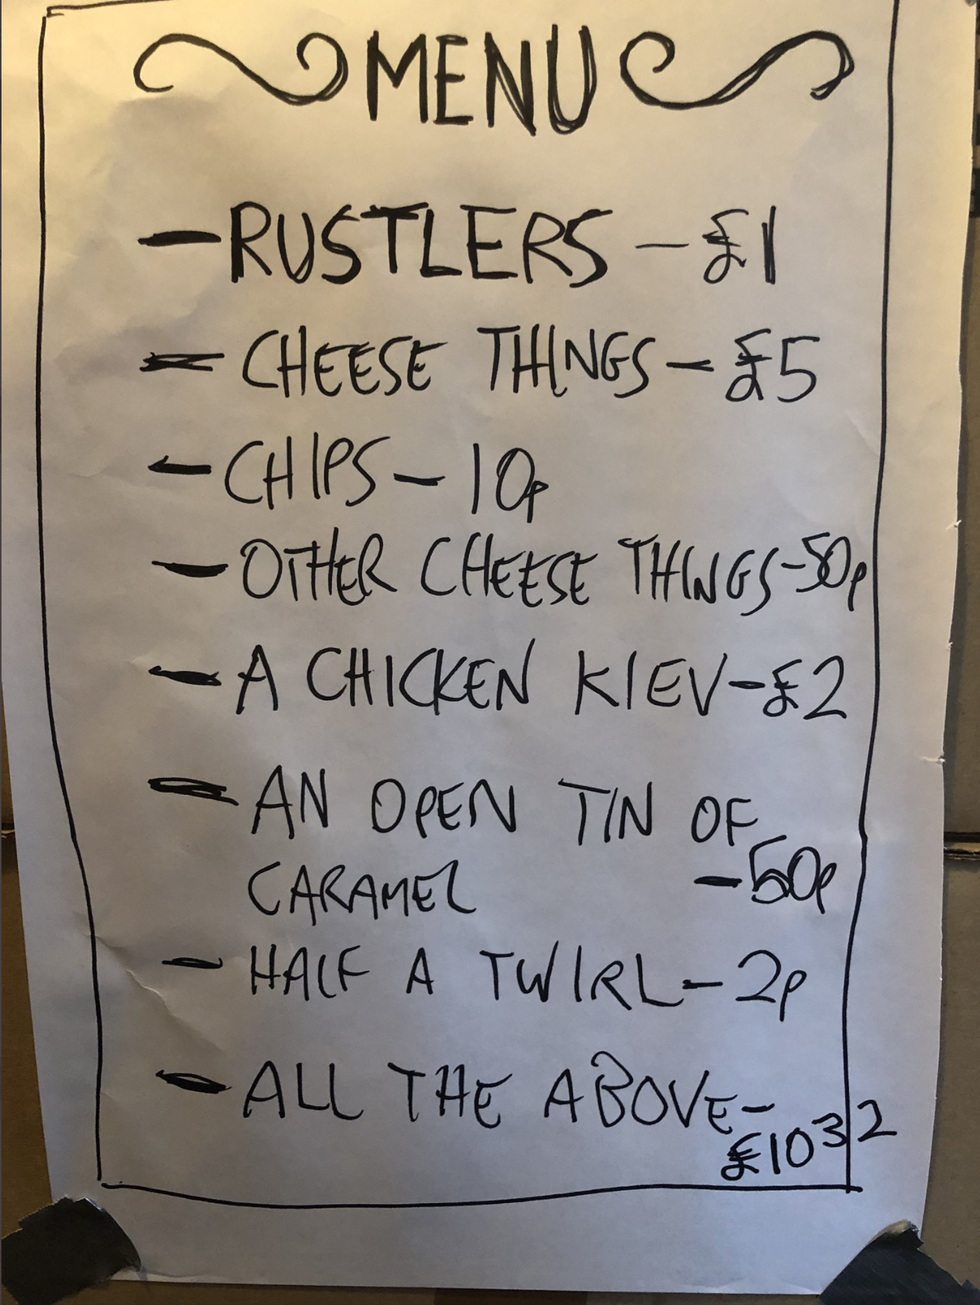 MENU
- RUSTLERS - £1
- CHEESE THINGS - £5
- CHIPS - 10p
- OTHER CHEESE THINGS - 50p
- A CHICKEN KIEV - £2
- AN OPEN TIN OF
CARAMEL - 50p
- HALF A TWIRL - 2p
- ALL THE ABOVE -
£10³²